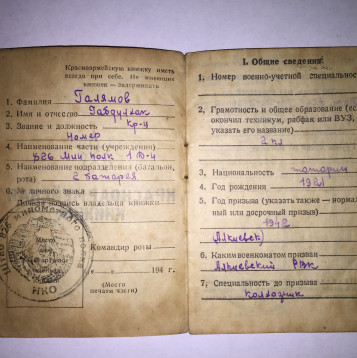 Красноармейскую книжку иметь
всегда при себе. Не имеющих
книжек — задерживать
1. Фамилия Галямов
2. Имя и отчество
3. Звание и должность Кр-ц
номер
4. Наименование части (учреждения)
5. Наименование подразделения (батальон,
рота)
6. № личного знака
Личная подпись владельца книжки
Командир роты
" " 194 г.
(Место
печати части)
НКО
I. Общие сведения
1. Номер военно-учетной специальнос
2. Грамотность и общее образование (ес
окончил техникум, рабфак или ВУЗ,
указать его название)
2 кл
3. Национальность татарин
4. Год рождения
5. Год призыва (указать также — нормаль
ный или досрочный призыв)
1942
6. Каким военкоматом призван
Алкеевский РВК
7. Специальность до призыва
колхозник